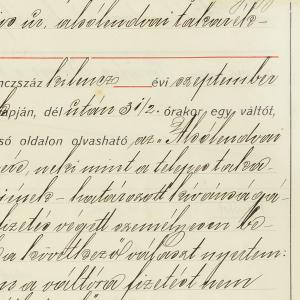 úr, alsólendvai takarék-
nczszáz kilencz évi szeptember
napján, dél után 3 1/2. órakor egy váltót,
só oldalon olvasható az "Alsólendvai
neki mint a teljes taka-
nek határozott kívánságá-
fizetés végett személyesen be-
a következő választ nyertem:
a váltóra fizetést nem